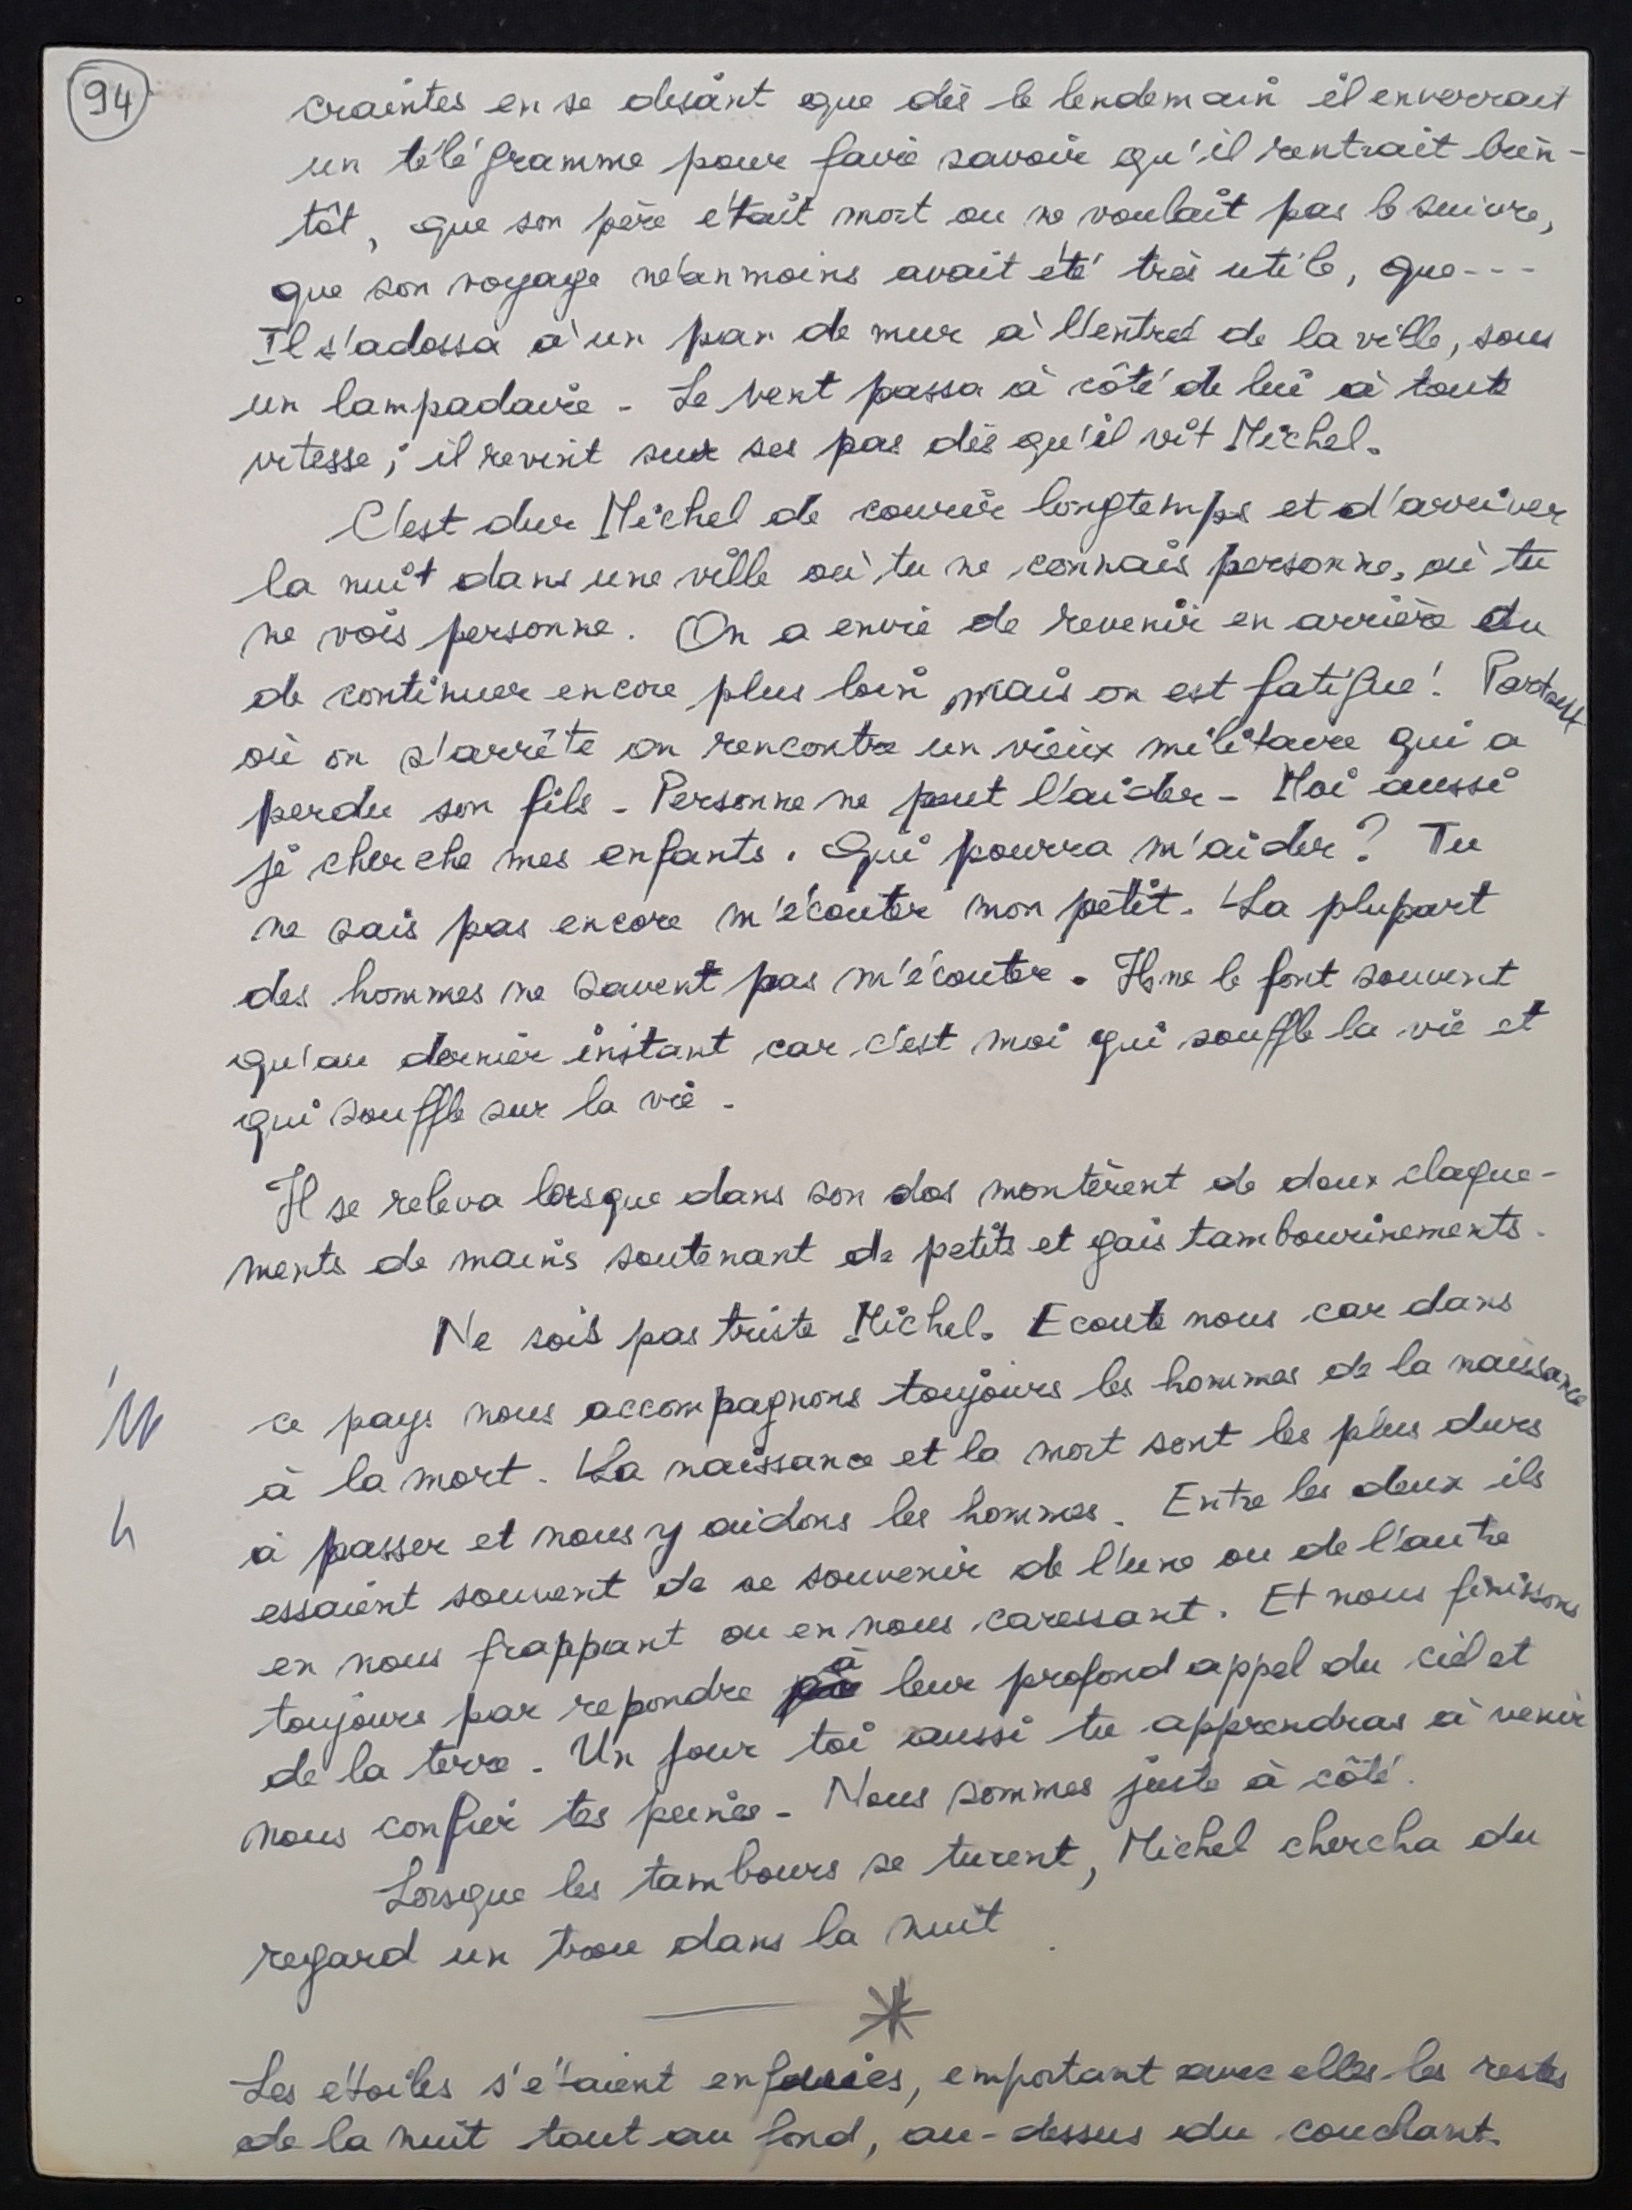 94
craintes en se disant que dès le lendemain il enverrait
un télégramme pour faire savoir qu'il rentrait bien-
tôt, que son père était mort ou ne voulait pas le suivre,
que son voyage néanmoins avait été très utile, que---
Il s'adossa à un pan de mur à l'entrée de la ville, sous
un lampadaire - Le vent passa à côté de lui à toute
vitesse ; il revint sur ses pas dès qu'il vit Michel.
C'est dur Michel de courir longtemps et d'arriver
la nuit dans une ville où tu ne connais personne, où tu
ne vois personne. On a envie de revenir en arrière ou
de continuer encore plus loin mais on est fatigué ! Partout
où on s'arrête on rencontre un vieux militaire qui a
perdu son fils - Personne ne peut l'aider - Moi aussi
je cherche mes enfants. Qui pourra m'aider ? Tu
ne sais pas encore m'écouter mon petit. La plupart
des hommes ne savent pas m'écouter. Ils ne le font souvent
qu'au dernier instant car c'est moi qui souffle la vie et
qui souffle sur la vie -
Il se releva lorsque dans son dos montèrent de doux claque-
ments de mains soutenant de petits et gais tambourinements.
Ne sois pas triste Michel. Ecoute nous car dans
ce pays nous accompagnons toujours les hommes de la naissance
à la mort. La naissance et la mort sont les plus durs
à passer et nous y aidons les hommes. Entre les deux ils
essaient souvent de se souvenir de l'une ou de l'autre
en nous frappant ou en nous caressant. Et nous finissons
toujours par repondre à leur profond appel du ciel et
de la terre. Un jour toi aussi tu apprendras à venir
nous confier tes peines - Nous sommes juste à côté.
Lorsque les tambours se turent, Michel chercha du
regard un trou dans la nuit.
Les étoiles s'étaient enfuies, emportant avec elles les restes
de la nuit tout au fond, au-dessus du couchant.